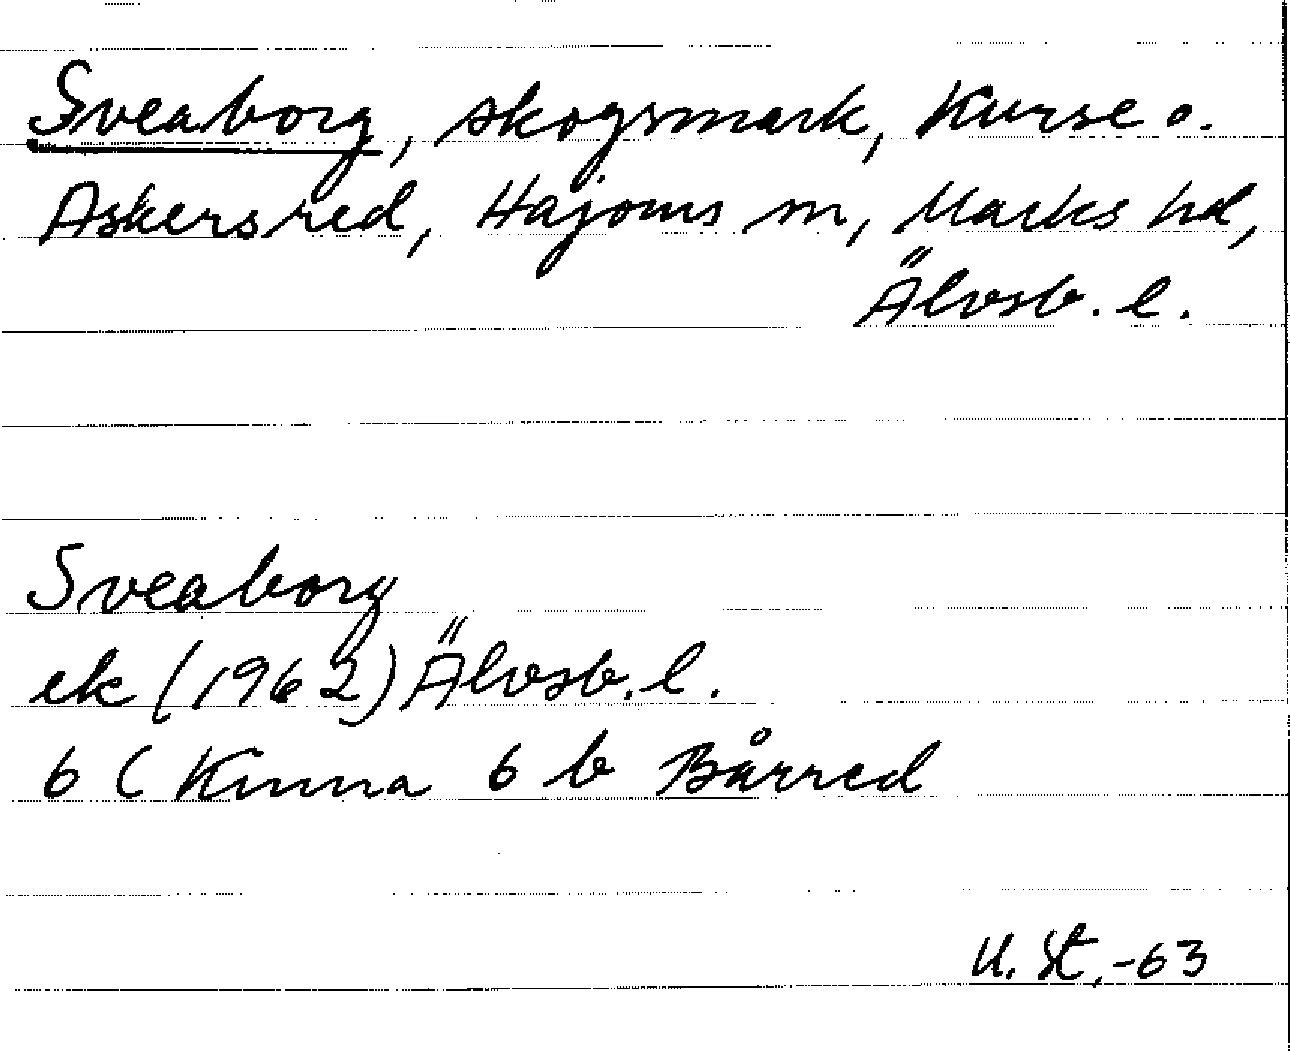 Sveaborg, skogsmark, Kurse o.
Askersred, Hajoms sn, Marks hd,
Älvsb. l.
Sveaborg
ek (1962) Älvsb. l.
6 C Kinna 6 b Bårred
U. St, -63